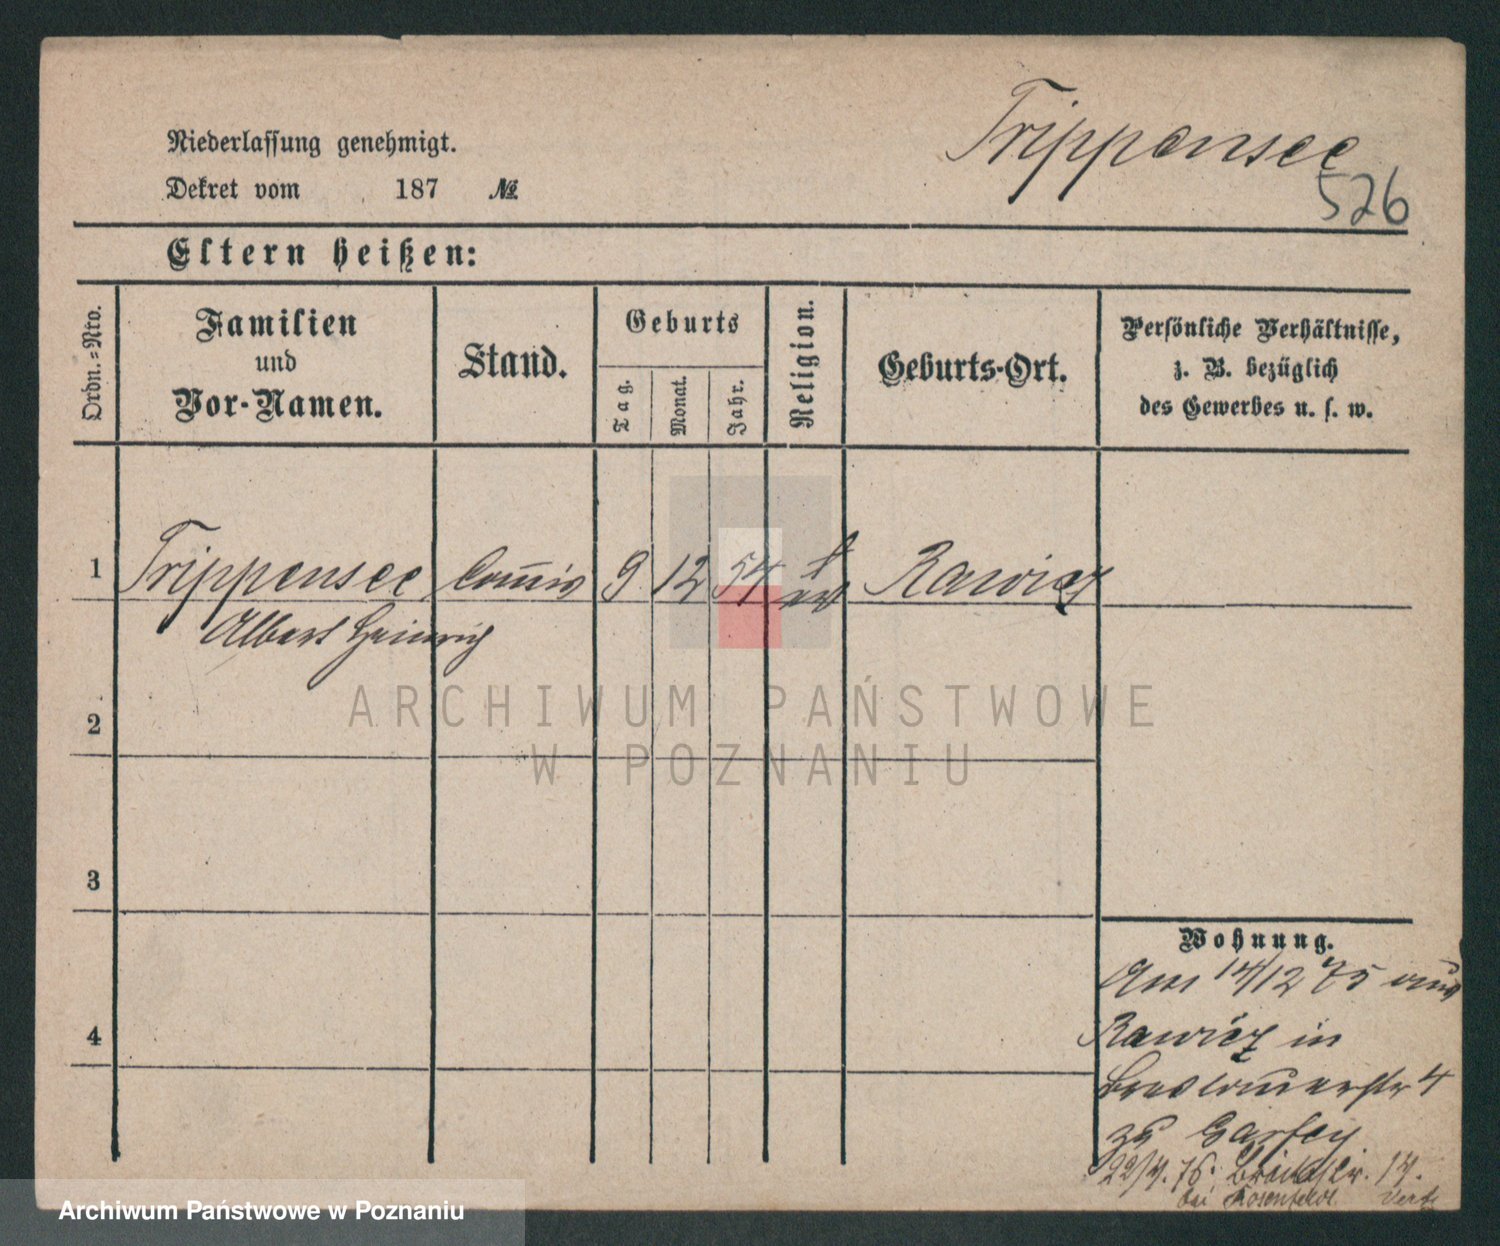 Trippensee
526
Niederlassung genehmigt.
Dekret vom 187 №
Eltern heißen:
Ordn.-Nro.
Familien
und
Vor-Namen.
Stand.
Geburts
Tag.
Monat.
Jahr.
Religion.
Geburts-Ort.
Persönliche Verhältnisse,
z. B. bezüglich
des Gewerbes u. s. w.
1 Trippensee Com̅is 9 12 54 Rawicz
Albert Heinrich
2
3
4
Wohnung.
Am 14/12 75 aus
Rawicz in
Breslauerstr 4
zu
22/4. 76. 14.
bei Rosenfeld.
ARCHIWUM PAŃSTWOWE
W POZNANIU
Archiwum Państwowe w Poznaniu